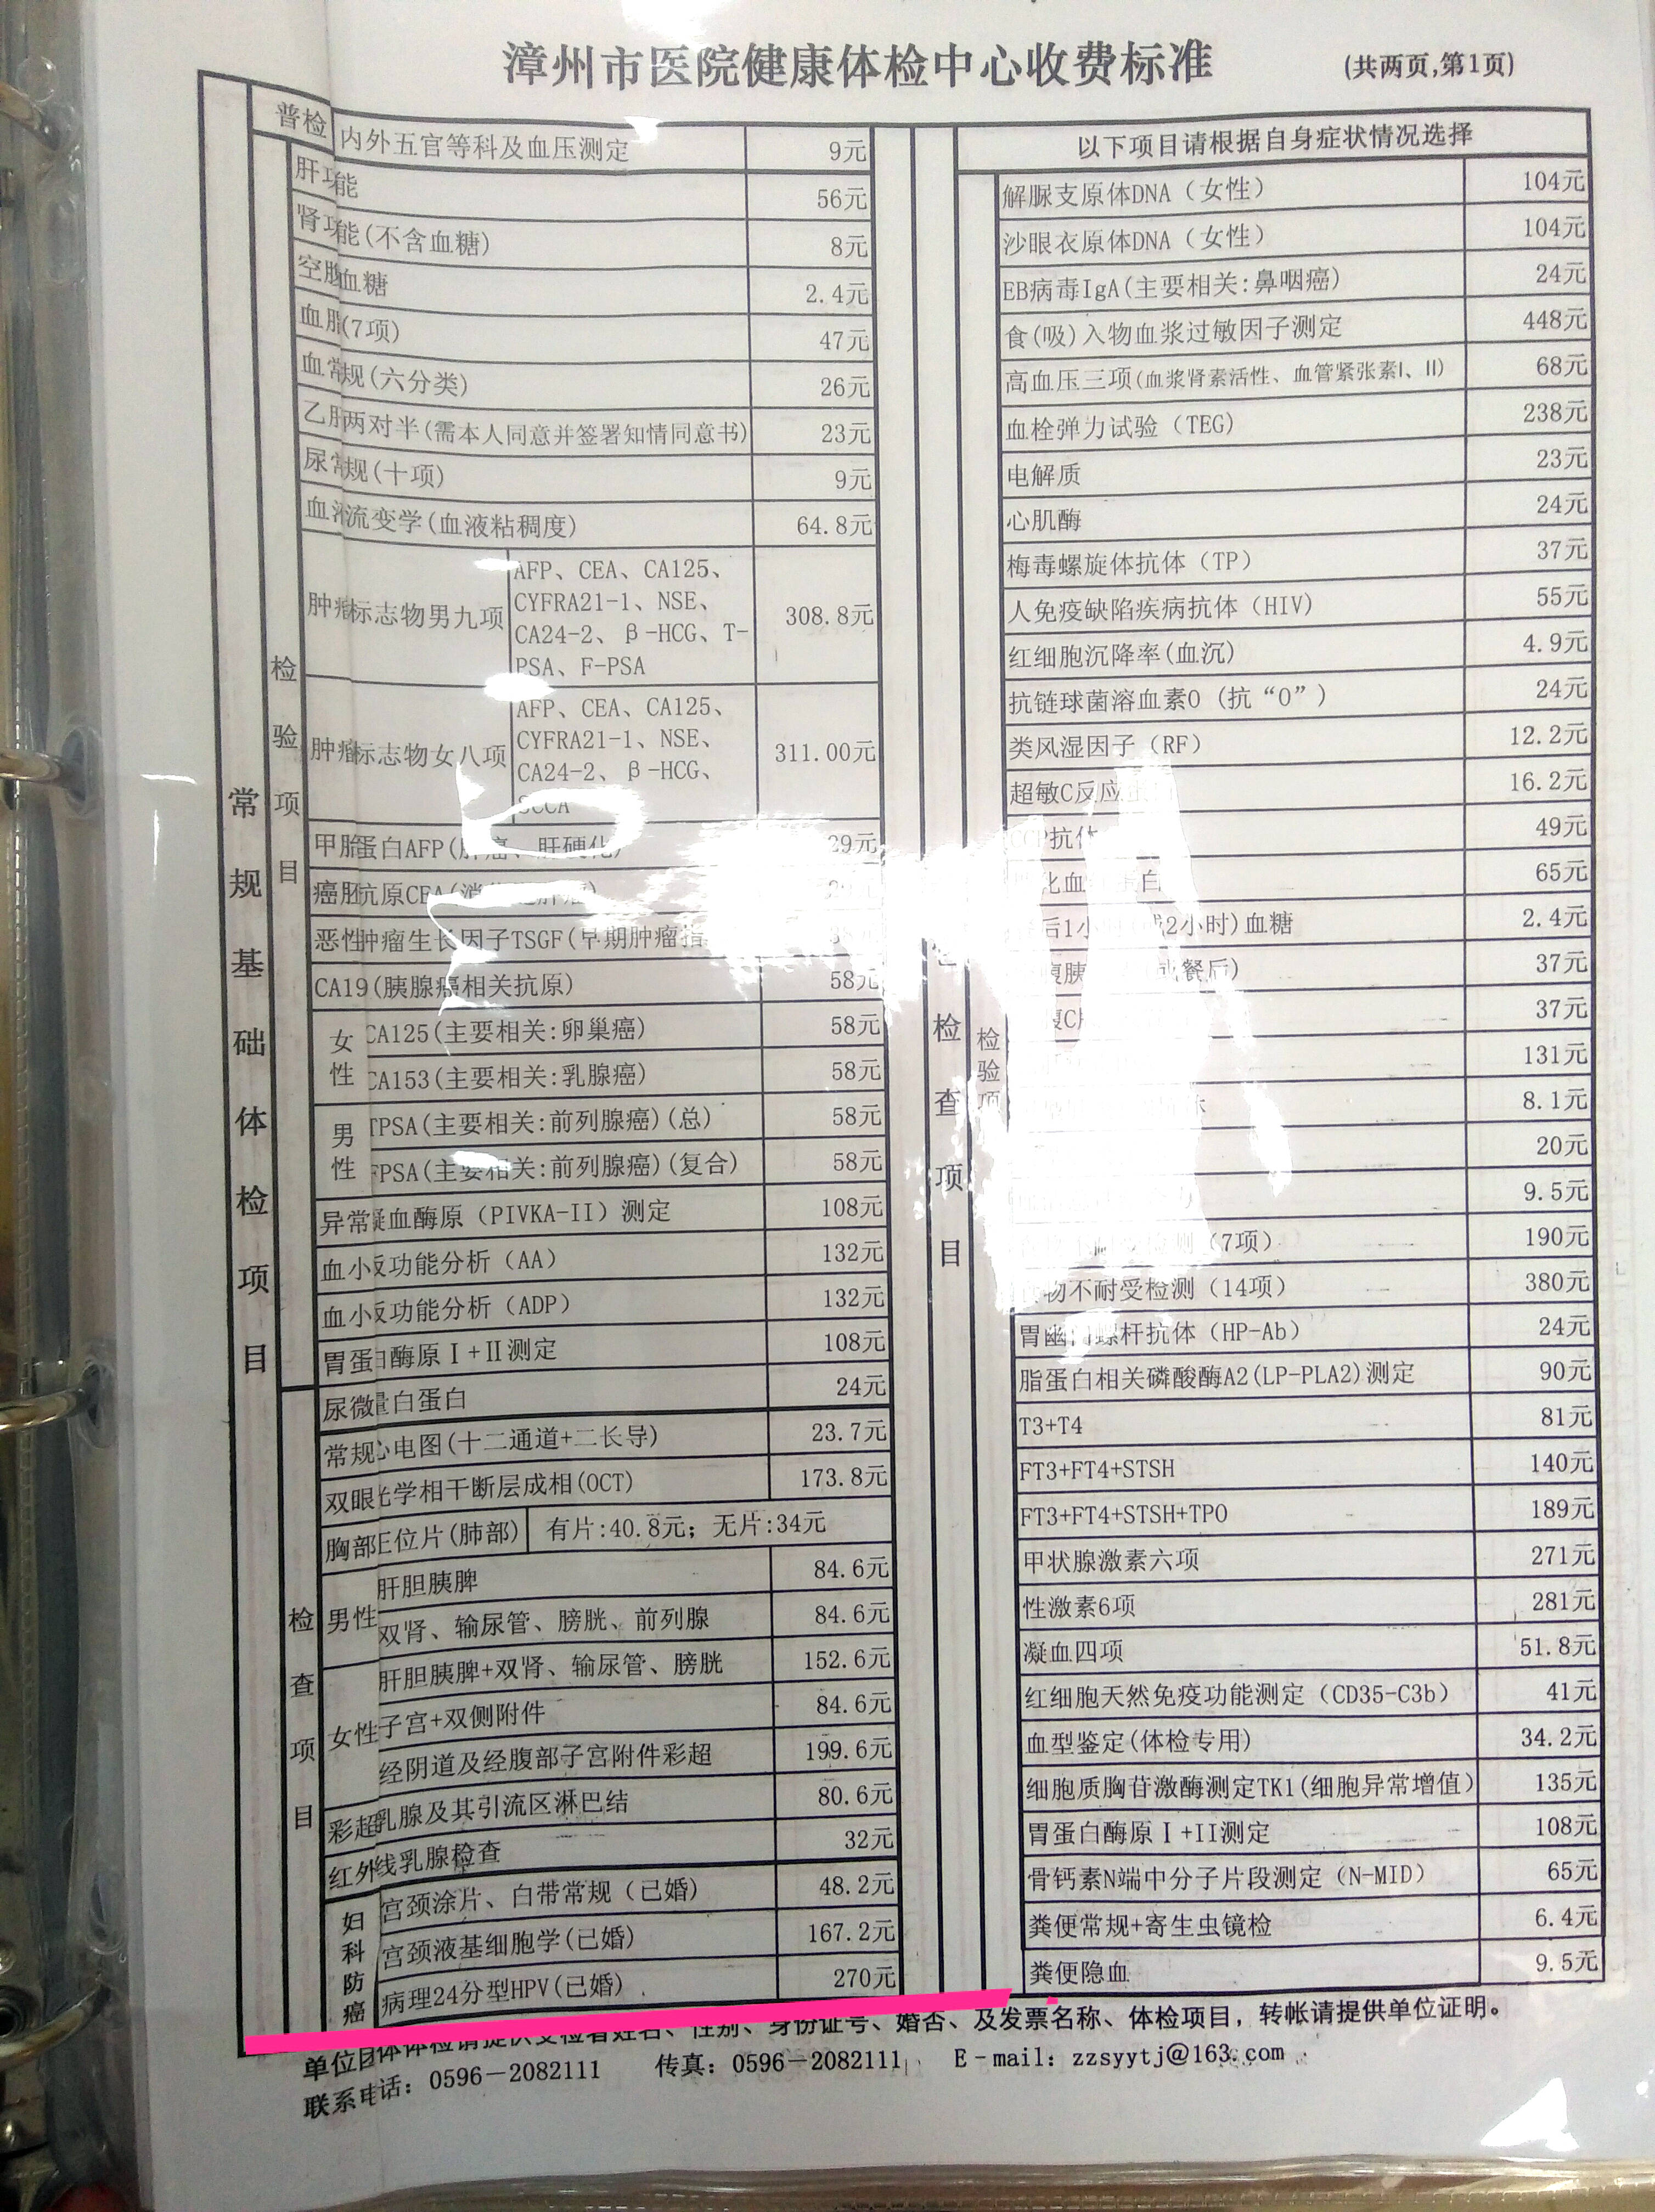 漳州市医院健康体检中心收费标准
(共两页,第1页)
常规基础体检项目
普检 内外五官等科及血压测定 9元
检验项目
肝功能 56元
肾功能(不含血糖) 8元
空腹血糖 2.4元
血脂(7项) 47元
血常规(六分类) 26元
乙肝两对半(需本人同意并签署知情同意书) 23元
尿常规(十项) 9元
血液流变学(血液粘稠度) 64.8元
肿瘤标志物男九项 308.8元
AFP、CEA、CA125、
CYFRA21-1、NSE、
CA24-2、β-HCG、T-
PSA、F-PSA
肿瘤标志物女八项 311.00元
AFP、CEA、CA125、
CYFRA21-1、NSE、
CA24-2、β-HCG、
SCCA
甲胎蛋白AFP(肝癌、肝硬化) 29元
癌胚抗原CEA
恶性肿瘤生长因子TSGF(早期肿瘤指
CA19(胰腺癌相关抗原) 58元
女性
CA125(主要相关:卵巢癌) 58元
CA153(主要相关:乳腺癌) 58元
男性
TPSA(主要相关:前列腺癌)(总) 58元
FPSA(主要相关:前列腺癌)(复合) 58元
异常凝血酶原（PIVKA-II）测定 108元
血小板功能分析（AA） 132元
血小板功能分析（ADP） 132元
胃蛋白酶原Ⅰ+Ⅱ测定 108元
尿微量白蛋白 24元
检查项目
常规心电图(十二通道+二长导) 23.7元
双眼光学相干断层成相(OCT) 173.8元
胸部正位片(肺部) 有片:40.8元; 无片:34元
彩超
男性
肝胆胰脾 84.6元
双肾、输尿管、膀胱、前列腺 84.6元
女性
肝胆胰脾+双肾、输尿管、膀胱 152.6元
子宫+双侧附件 84.6元
经阴道及经腹部子宫附件彩超 199.6元
乳腺及其引流区淋巴结 80.6元
红外线乳腺检查 32元
妇科防癌
宫颈涂片、白带常规（已婚） 48.2元
宫颈液基细胞学(已婚) 167.2元
病理24分型HPV(已婚) 270元
以下项目请根据自身症状情况选择
检查项目
检验项
解脲支原体DNA（女性） 104元
沙眼衣原体DNA（女性） 104元
EB病毒IgA(主要相关:鼻咽癌) 24元
食(吸)入物血浆过敏因子测定 448元
高血压三项(血浆肾素活性、血管紧张素Ⅰ、Ⅱ) 68元
血栓弹力试验（TEG） 238元
电解质 23元
心肌酶 24元
梅毒螺旋体抗体（TP） 37元
人免疫缺陷疾病抗体（HIV） 55元
红细胞沉降率(血沉) 4.9元
抗链球菌溶血素O（抗“O”） 24元
类风湿因子（RF） 12.2元
超敏C反应 16.2元
CCP抗体 49元
化血红蛋白 65元
后1小时(或2小时)血糖 2.4元
腹胰 或餐后) 37元
腹C 37元
131元
8.1元
20元
9.5元
(7项） 190元
食物不耐受检测（14项） 380元
胃幽门螺杆抗体（HP-Ab） 24元
脂蛋白相关磷酸酶A2(LP-PLA2)测定 90元
T3+T4 81元
FT3+FT4+STSH 140元
FT3+FT4+STSH+TPO 189元
甲状腺激素六项 271元
性激素6项 281元
凝血四项 51.8元
红细胞天然免疫功能测定（CD35-C3b） 41元
血型鉴定(体检专用) 34.2元
细胞质胸苷激酶测定TK1(细胞异常增值) 135元
胃蛋白酶原Ⅰ+II测定 108元
骨钙素N端中分子片段测定（N-MID） 65元
粪便常规+寄生虫镜检 6.4元
粪便隐血 9.5元
单位团体体检请提供受检者姓名、性别、身份证号、婚否、及发票名称、体检项目，转帐请提供单位证明。
联系电话：0596－2082111 传真：0596－2082111 E-mail：zzsyytj@163.com